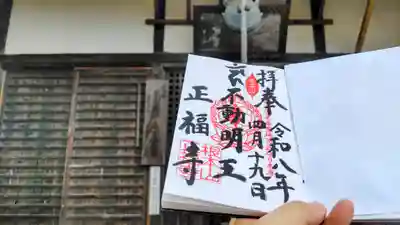 奉拝
令和八年
四月十九日
不動明王
正福寺